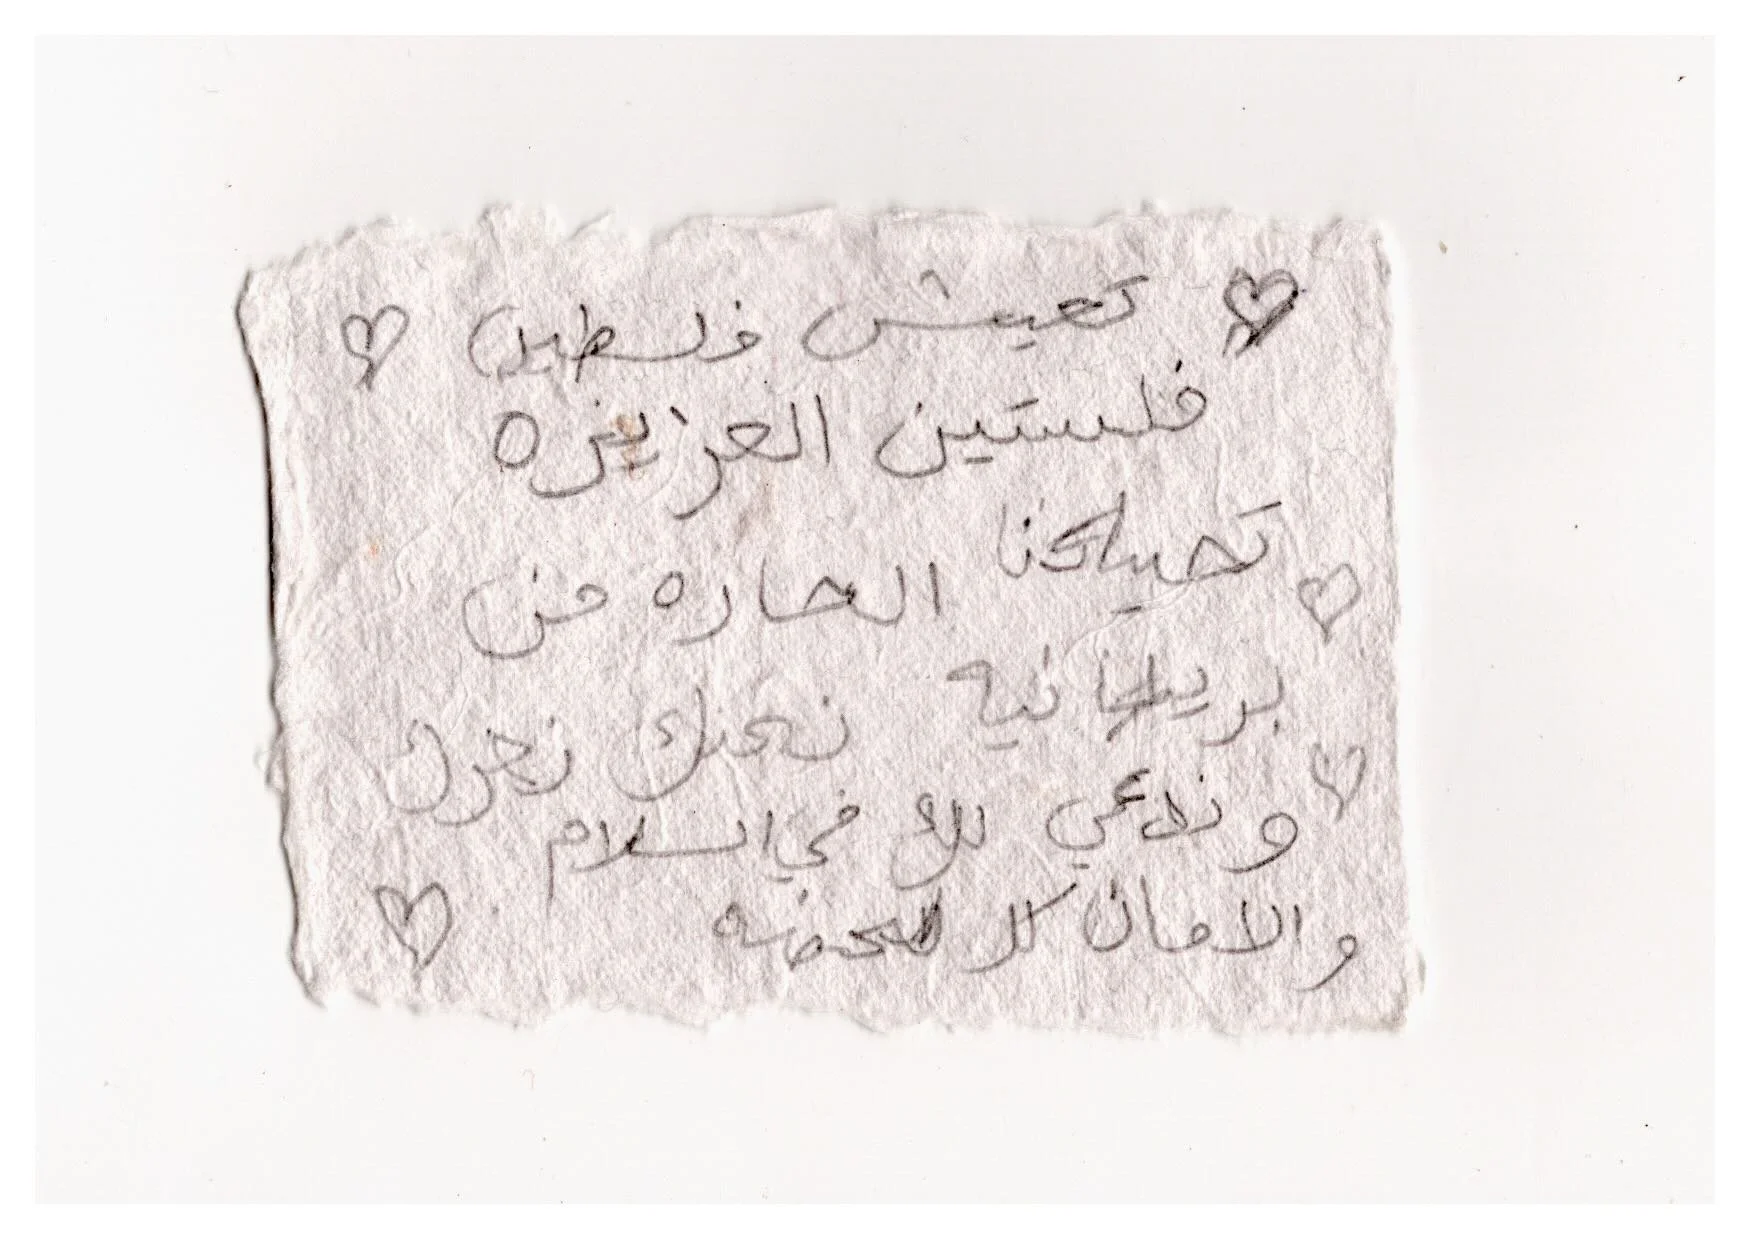 تعيش فلسطين
فلستين العزيزه
تحياتنا الحاره من
بريطانيه نحبك نعزك
وندعي لك في السلام
والامان كل لحضه